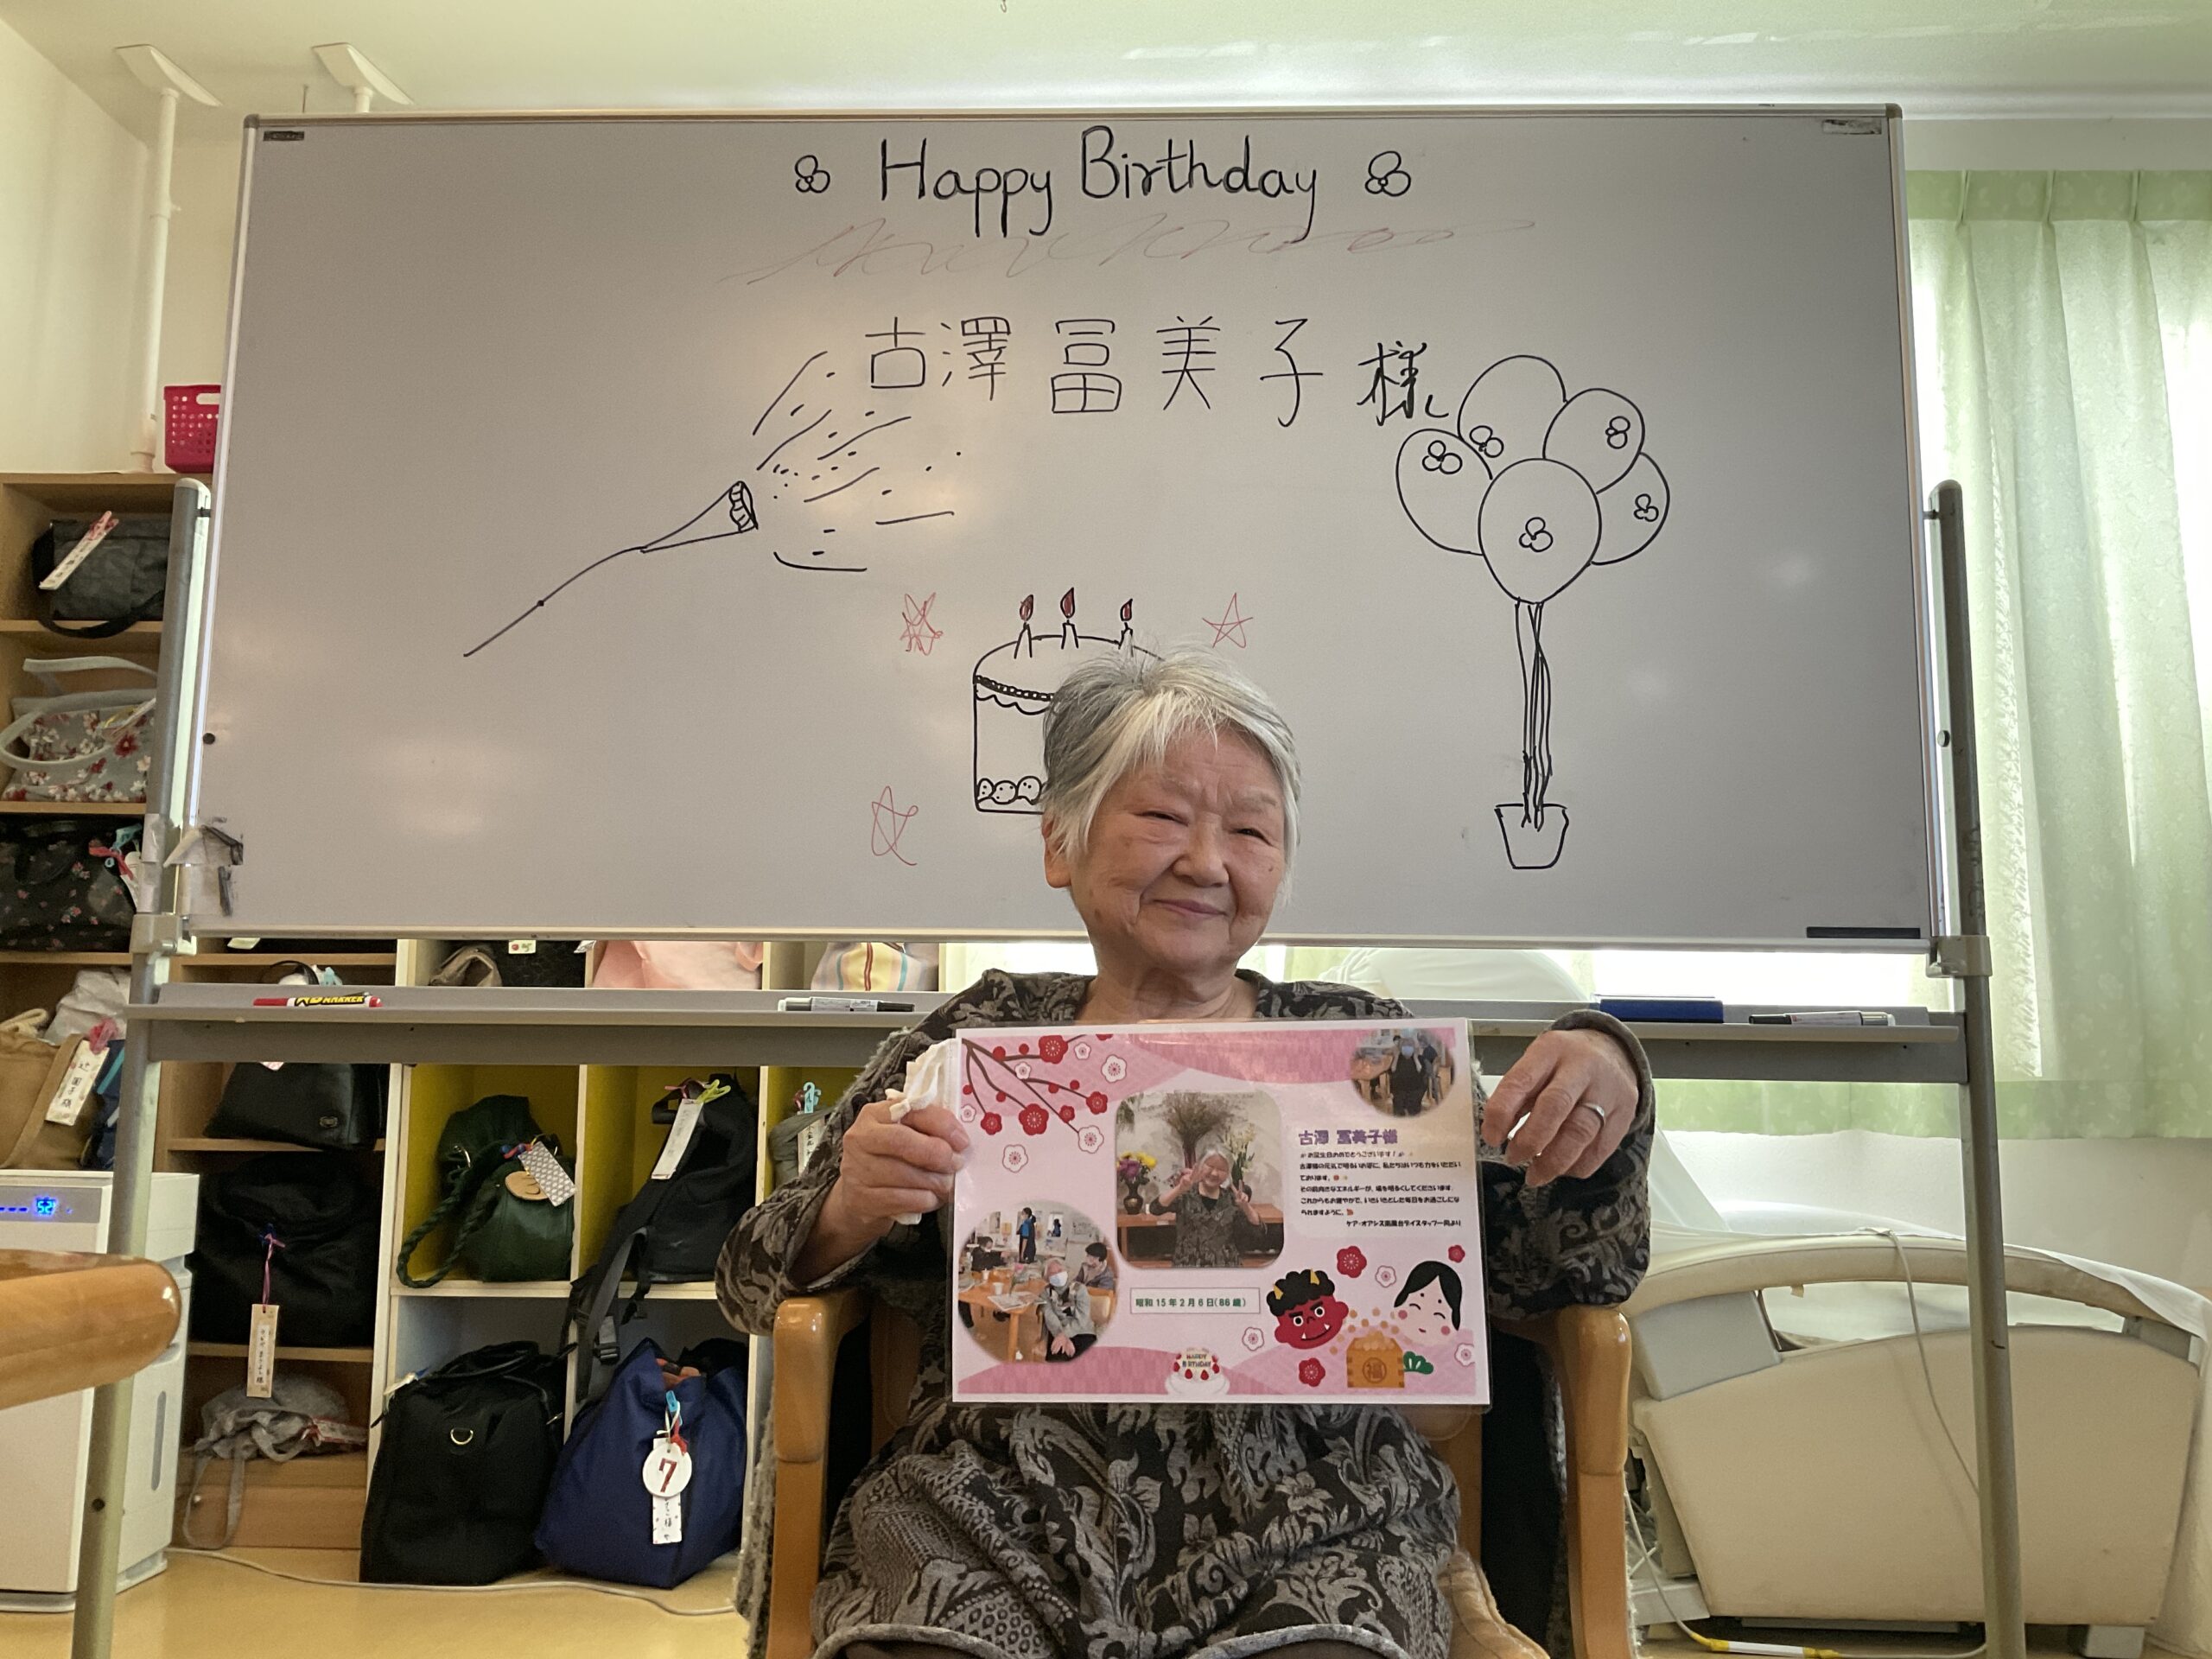 Happy Birthday
古澤 冨美子 様
古澤 冨美子様
お誕生日おめでとうございます！
古澤様の元気で明るいお姿に、私たちはいつも力をいただい
ております。
その前向きなエネルギーが、場を明るくしてくださいます。
これからもお健やかで、いきいきとした毎日をお過ごしにな
られますように。
昭和15年2月6日(86歳)
HAPPY
BIRTHDAY
福
MARKER
52
7